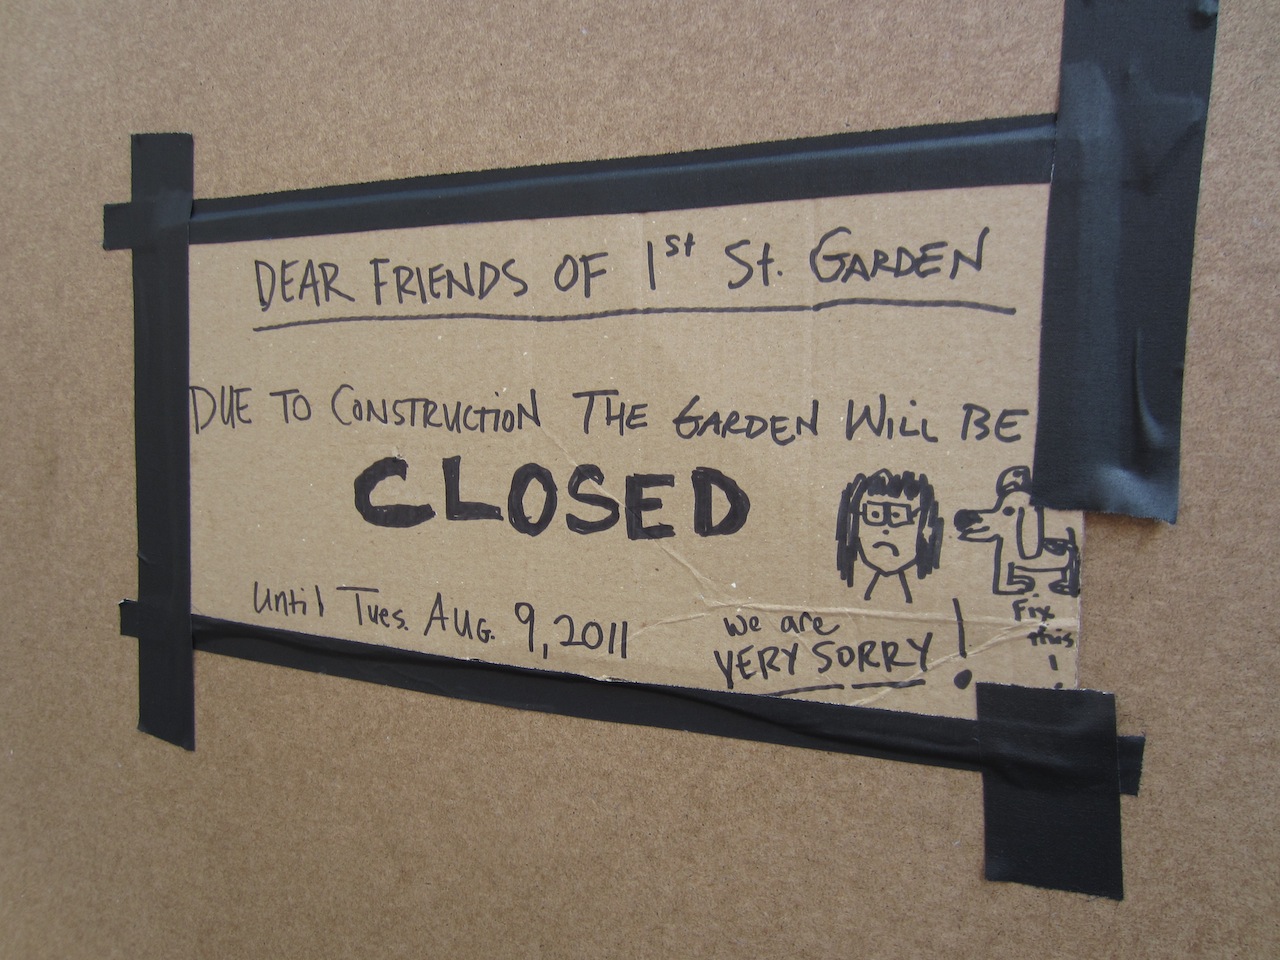 DEAR FRIENDS OF 1st St. GARDEN
DUE TO CONSTRUCTION THE GARDEN WILL BE
CLOSED
until Tues. AUG. 9, 2011
we are
VERY SORRY!
Fix
this
!